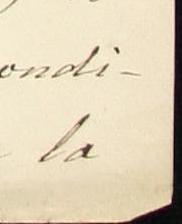 ondi-
la